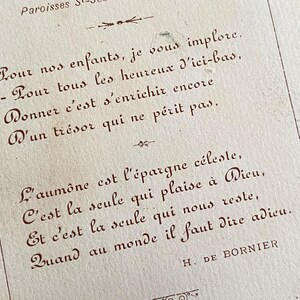 Paroisses St-
Pour nos enfants, je vous implore.
- Pour tous les heureux d'ici-bas,
Donner c'est s'enrichir encore
D'un trésor qui ne périt pas.
L'aumône est l'épargne céleste,
C'est la seule qui plaise à Dieu,
Et c'est la seule qui nous reste,
Quand au monde il faut dire adieu.
H. DE BORNIER